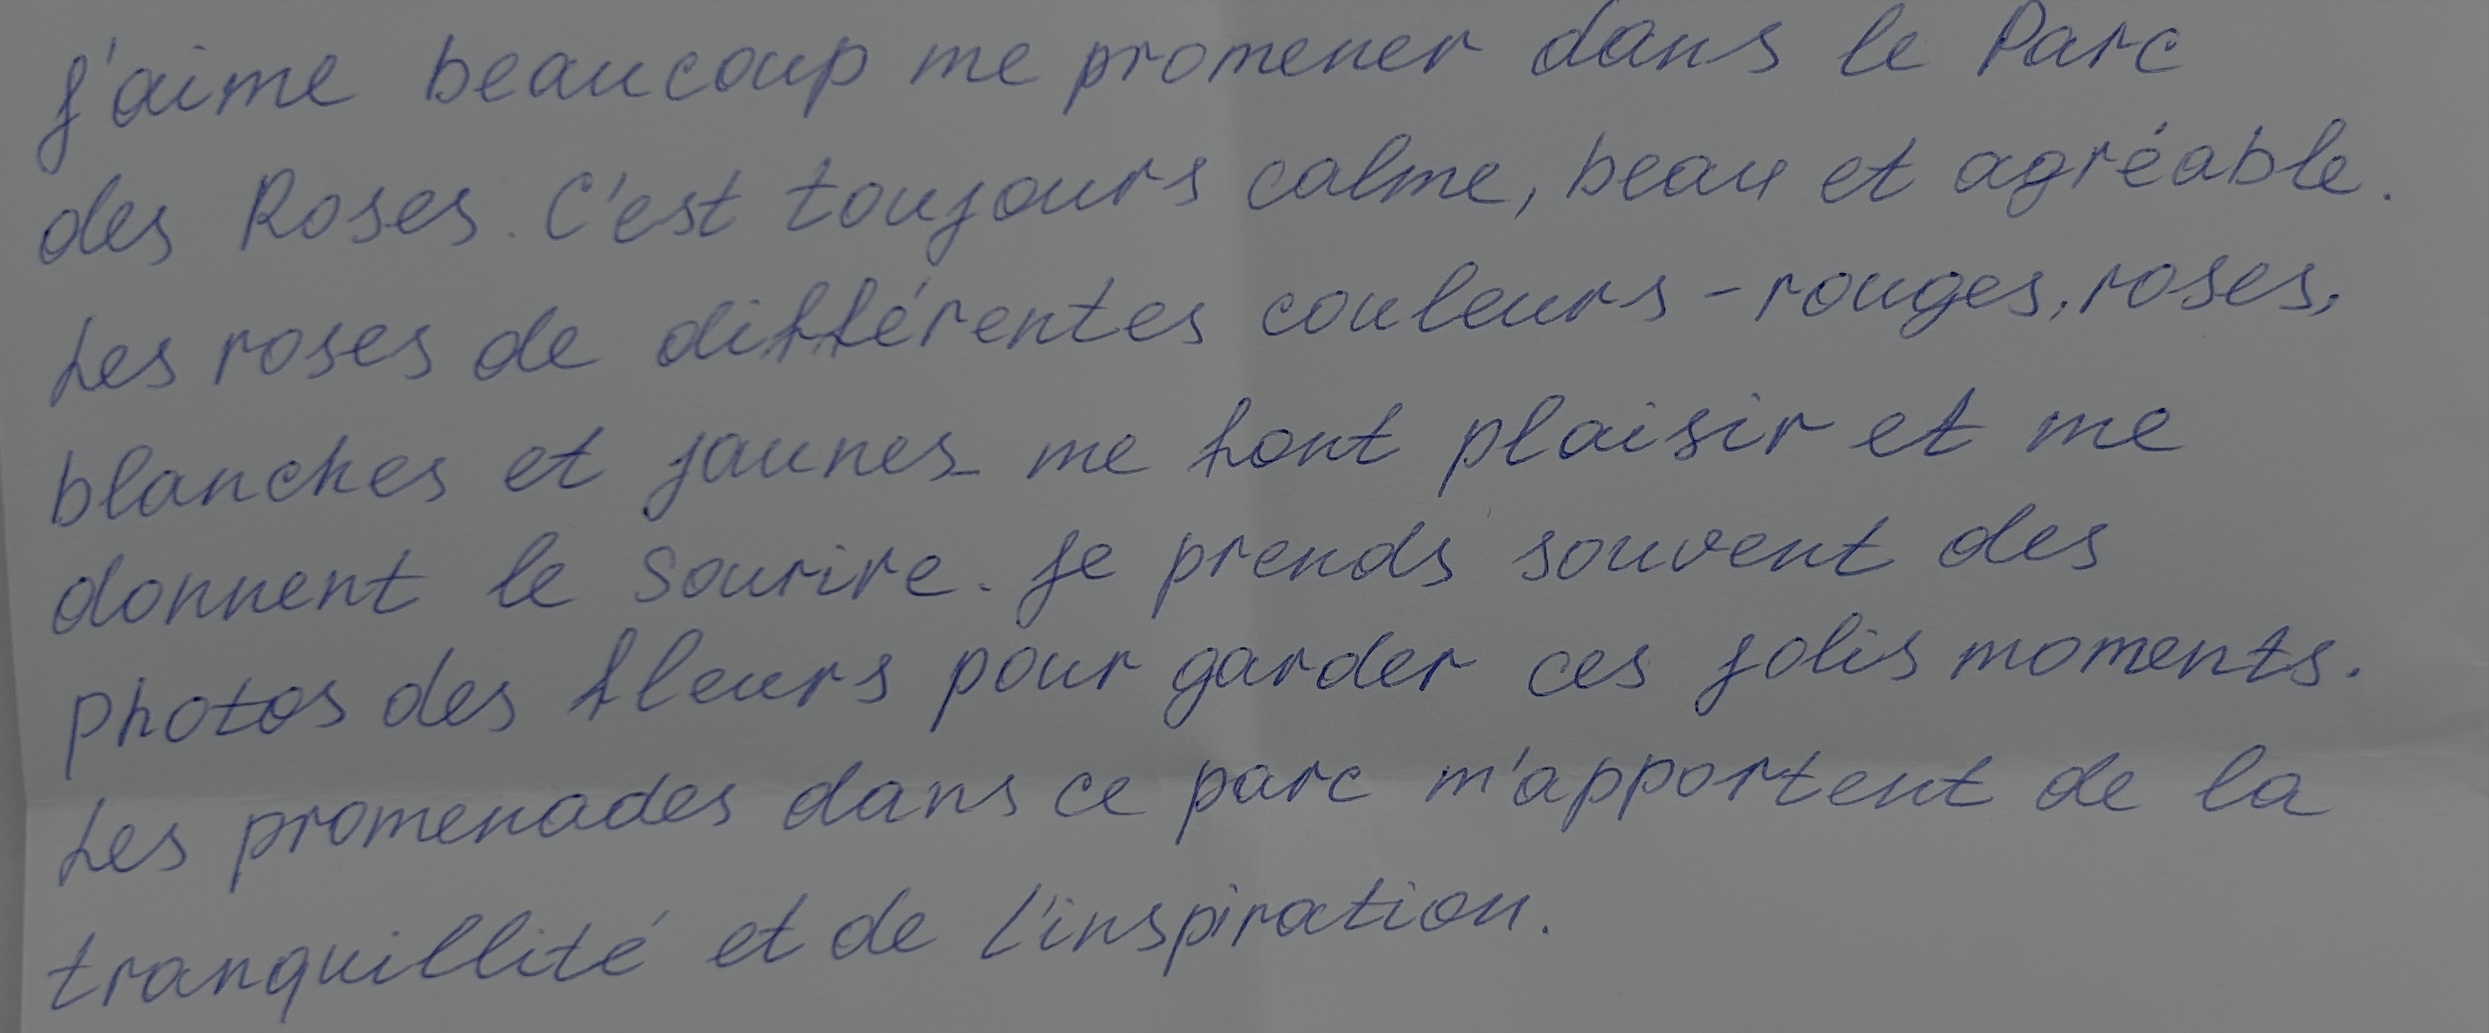 J'aime beaucoup me promener dans le Parc
des Roses. C'est toujours calme, beau et agréable.
Les roses de différentes couleurs - rouges, roses,
blanches et jaunes me font plaisir et me
donnent le sourire. Je prends souvent des
photos des fleurs pour garder ces jolis moments.
Les promenades dans ce parc m'apportent de la
tranquillité et de l'inspiration.